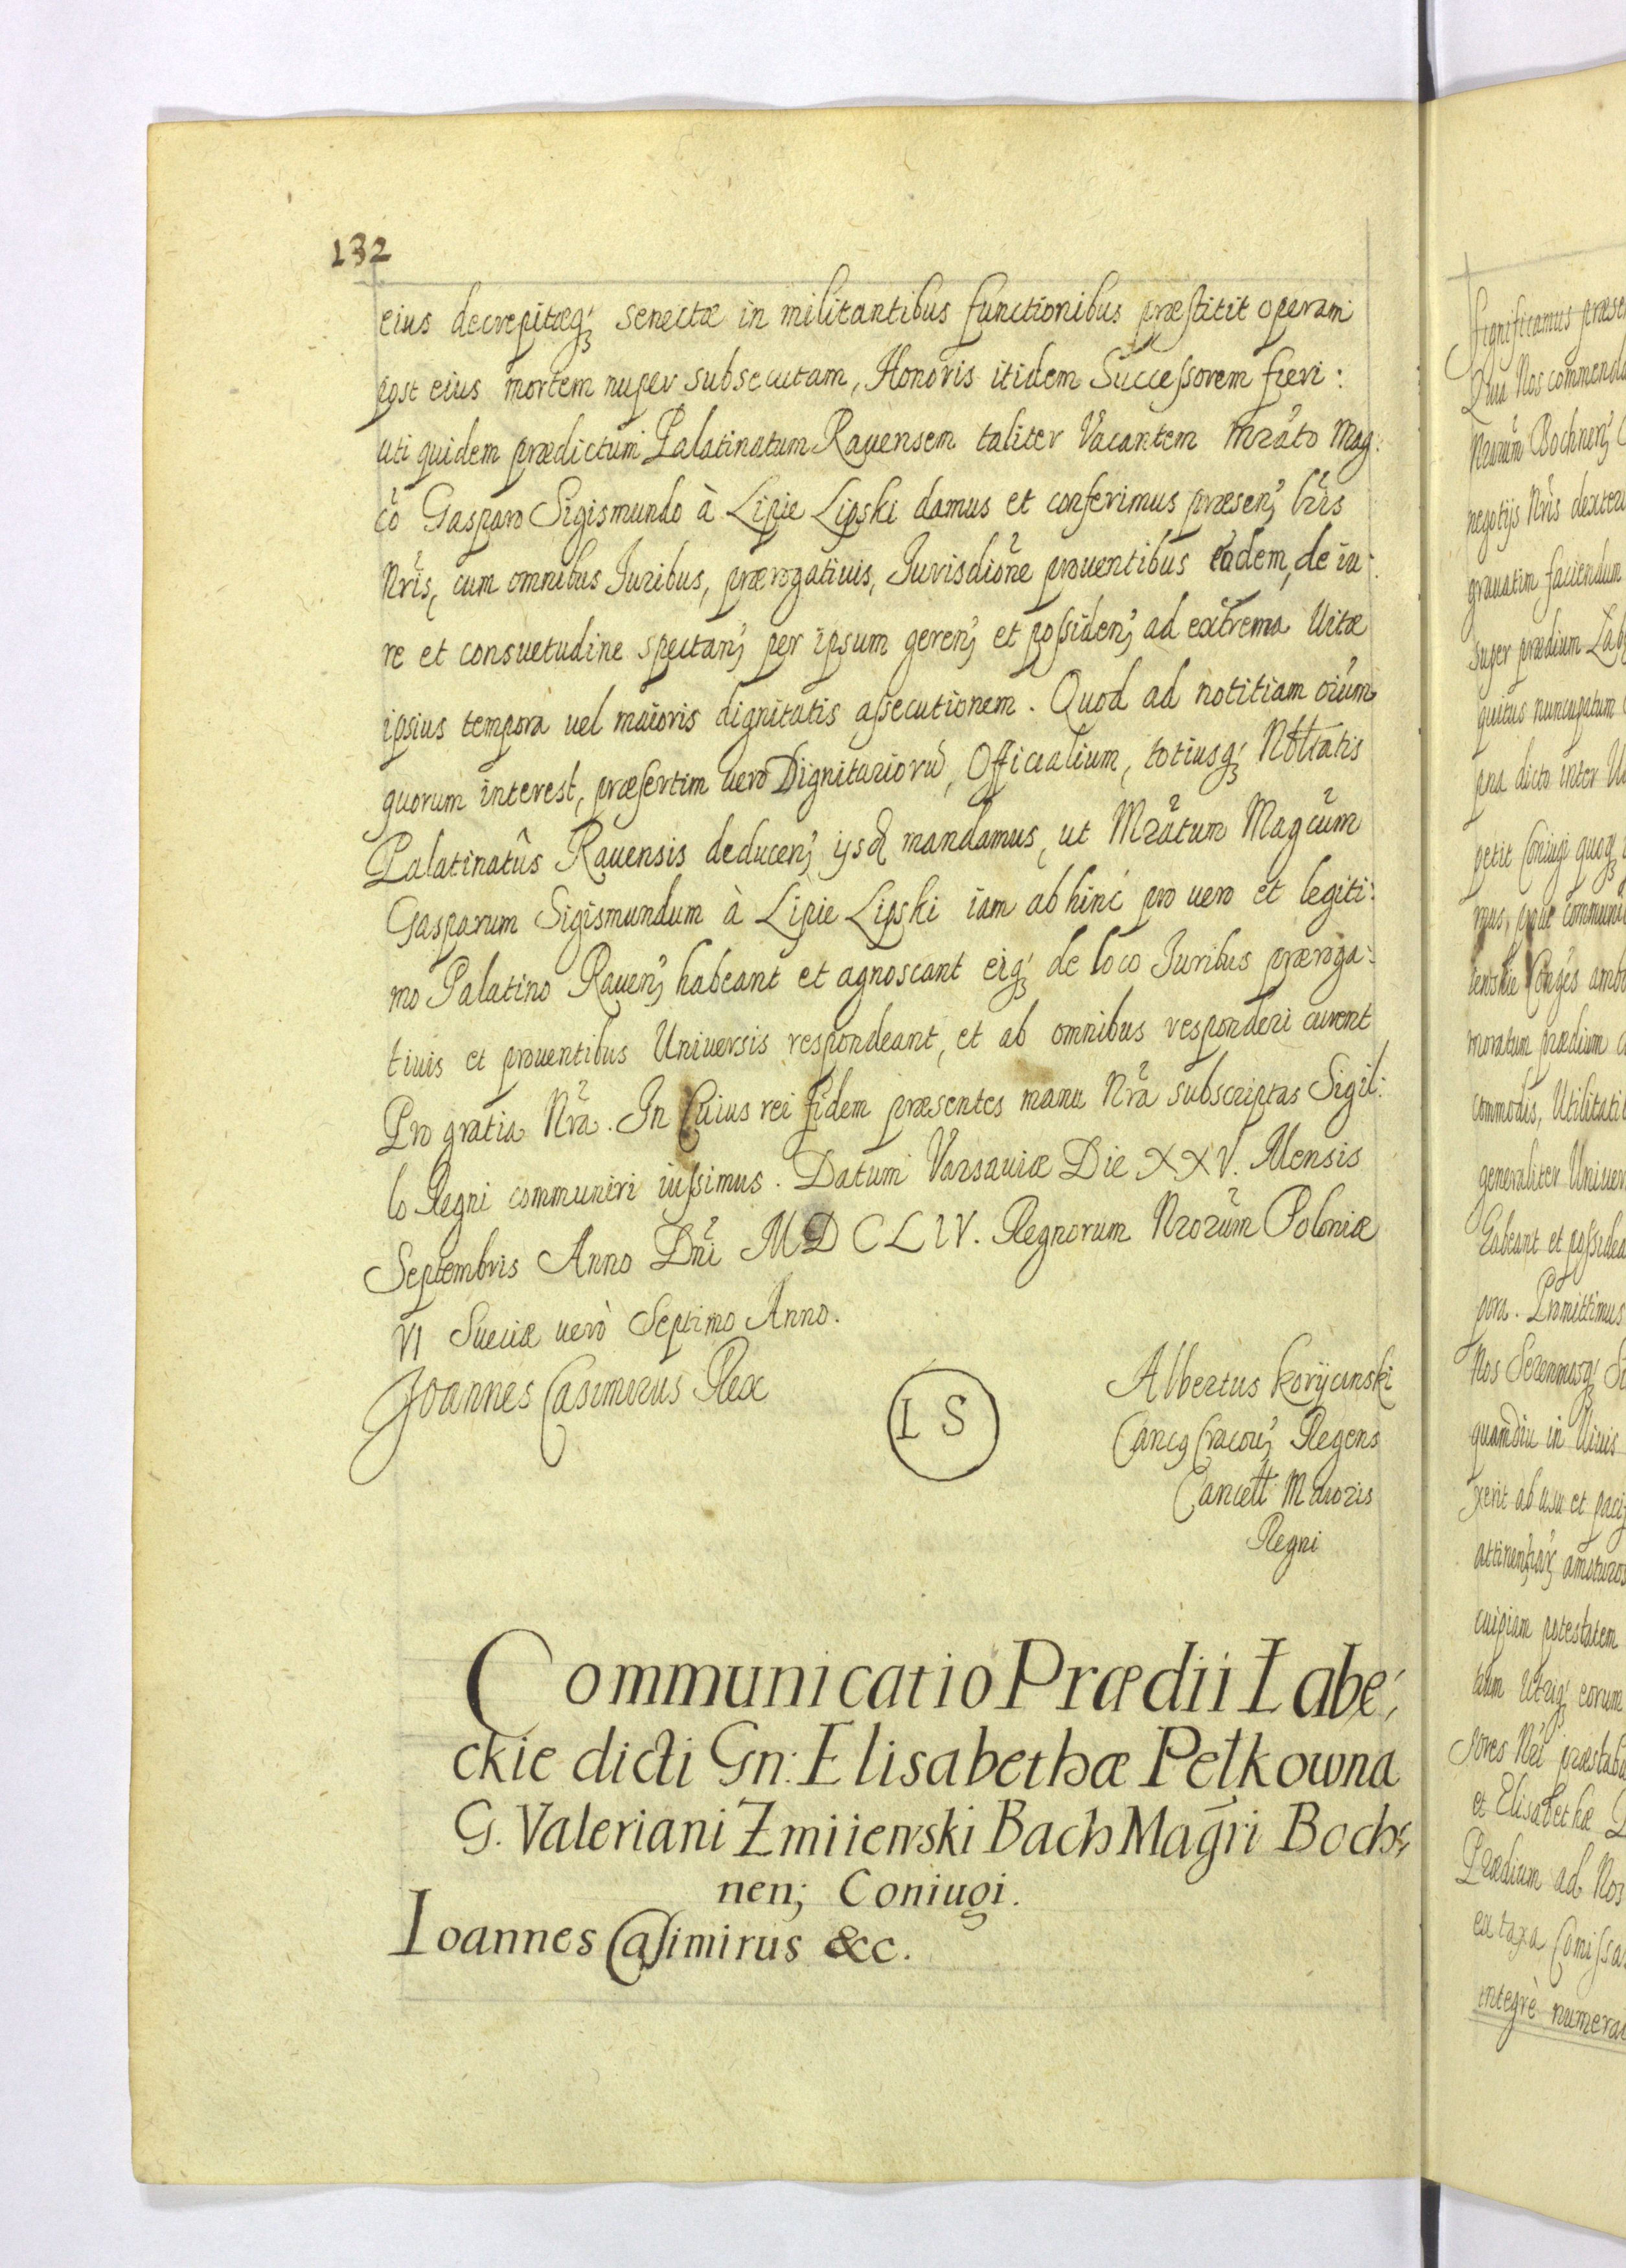 132
eius decrepitæq; senectæ in militantibus functionibus præstitit operam
post eius mortem nuper subsecutam, Honoris itidem Successorem fieri:
uti quidem prædictum Palatinatum Rauensem taliter Vacantem Mrãto Mag:
cõ Gasparo Sigismundo à Lipie Lipski damus et conferimus præsen; lr̃is
Nr̃is, cum omnibus Iuribus, prærogatiuis, Iurisdiõne prouentibus eadem, de iu:
re et consuetudine spectan; per ipsum geren; et possiden; ad extrema Uitæ
ipsius tempora uel maioris dignitatis assecutionem. Quod ad notitiam oĩum
quorum interest, præsertim uero Dignitariorũ, Officialium, totiusq; Nobłtatis
Palatinatûs Rauensis deducen; ijsđ mandamus, ut Mrãtum Magcũm
Gasparum Sigismundum à Lipie Lipski iam abhinc pro uero et legiti:
mo Palatino Rauen; habeant et agnoscant eiq; de loco Iuribus præroga:
tiuis et prouentibus Uniuersis respondeant, et ab omnibus responderi curent
Pro gratia Nr̃a. In Cuius rei fidem præsentes manu Nr̃a subscriptas Sigil:
lo Regni communiri iussimus. Datum Varsauiæ Die XXV. Mensis
Septembris Anno Dñi MDCLIV. Regnorum Nrorũm Poloniæ
VI Sueciæ uerò Septimo Anno.
Joannes Casimirus Rex
L S
Albertus Korijcinski
Canc9 Cracou; Regens
Cancełł Maioris
Regni
Communicatio Prædii Łabę,
ckie dicti Gn: Elisabethæ Pełkowna
G. Valeriani Zmiiewski Bach Magr̃i Boch,
nen; Coniugi.
Ioannes Casimirus &c.
Significamus
Quia Nos
Bochnen;
negotijs Nr̃is
grauatim faciendum
super prædium
nuncupatum
dicto inter
petit Coniugi quoq;
moratum prædium
commodis,
generaliter
habeant et
pora. Promittimus
Nos
quamdiu in Uiuis
ab usu et
cuipiam potestatem
eorum
et Elisabethæ
Prædium ad Nos
ex taxa
integrè